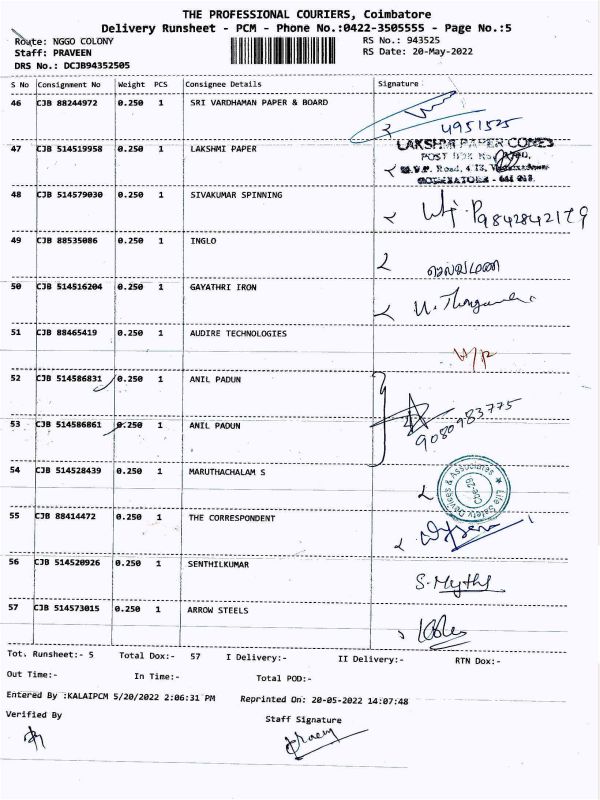 THE PROFESSIONAL COURIERS, Coimbatore
Delivery Runsheet - PCM - Phone No.:0422-3505555 - Page No.:5
Route: NGGO COLONY RS No.: 943525
Staff: PRAVEEN RS Date: 20-May-2022
DRS No.: DCJB94352505
S No Consignment No Weight PCS Consignee Details Signature
46 CJB 88244972 0.250 1 SRI VARDHAMAN PAPER & BOARD
4951525
47 CJB 514519958 1 LAKSHMI PAPER LAKSHMI PAPER CONES
POST BOX No
COIMBATORE
48 CJB 514579030 0.250 1 SIVAKUMAR SPINNING 9842842179
49 CJB 88535086 0.250 1 INGLO
50 CJB 514516204 0.250 1 GAYATHRI IRON
51 CJB 88465419 0.250 1 AUDIRE TECHNOLOGIES
52 CJB 514586831 0.250 1 ANIL PADUN
53 CJB 514586861 0.250 1 ANIL PADUN 9080983775
54 CJB 514528439 0.250 1 MARUTHACHALAM S Life Safety Devices & Associates
Cbe-29
55 CJB 88414472 0.250 1 THE CORRESPONDENT
56 CJB 514520926 0.250 1 SENTHILKUMAR
57 CJB 514573015 0.250 1 ARROW STEELS
Tot. Runsheet:- 5 Total Dox:- 57 I Delivery:- II Delivery:- RTN Dox:-
Out Time:- In Time:- Total POD:-
Entered By :KALAIPCM 5/20/2022 2:06:31 PM Reprinted On: 20-05-2022 14:07:48
Verified By Staff Signature